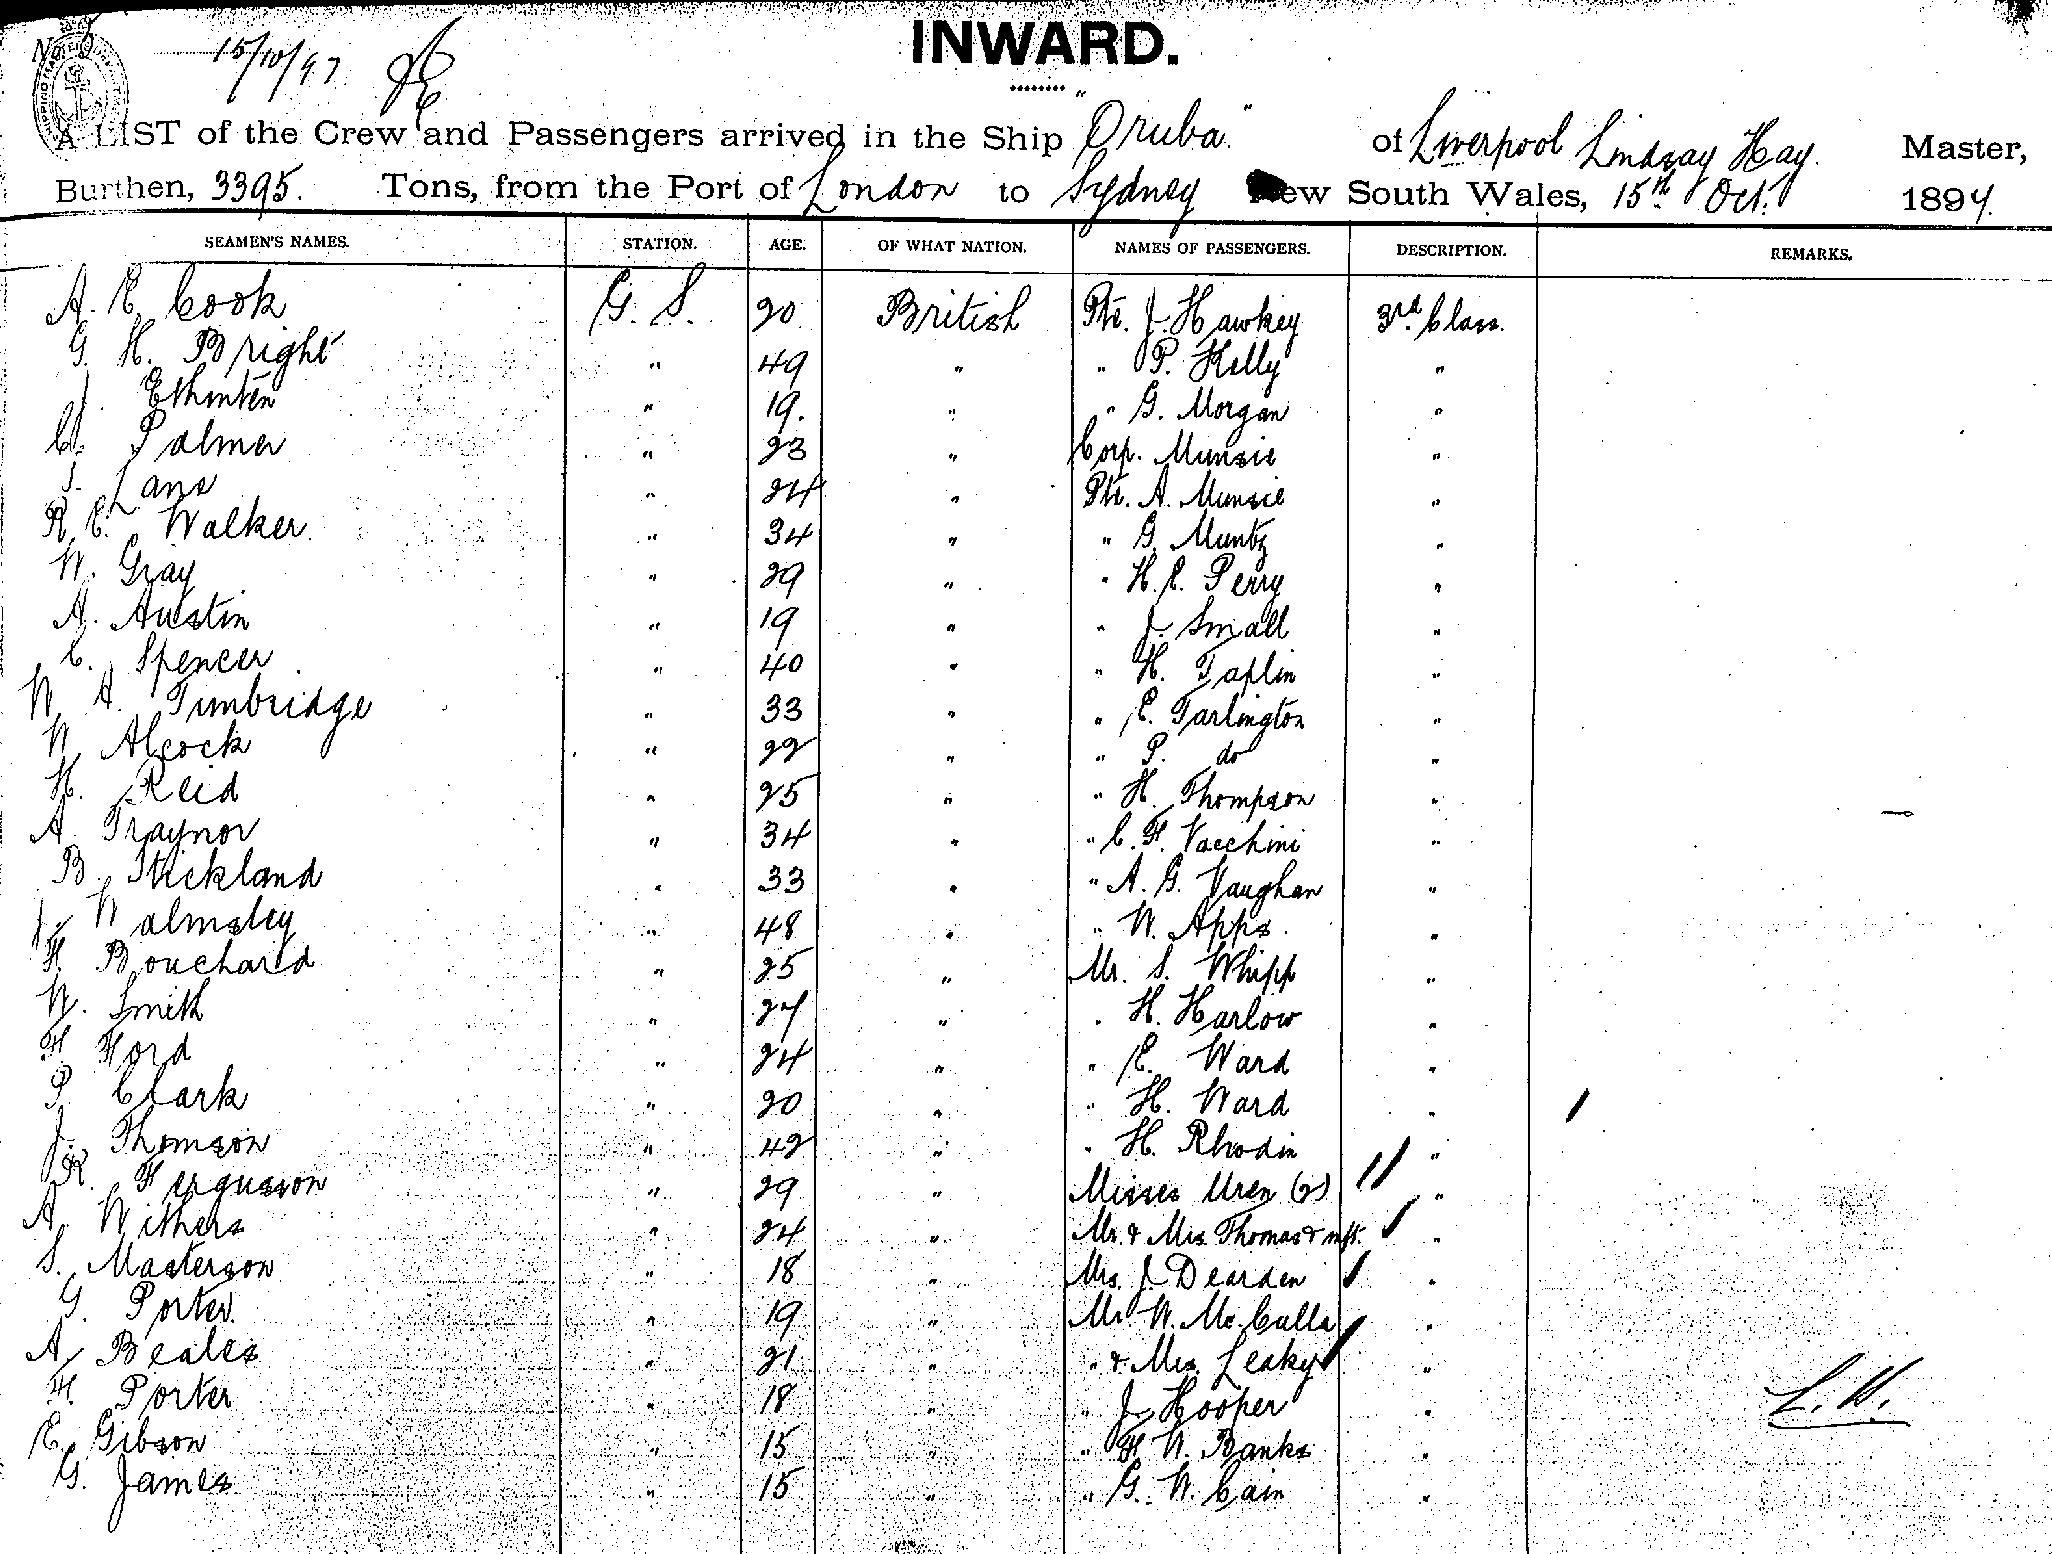 No 6
15/10/97
INWARD.
A LIST of the Crew and Passengers arrived in the Ship "Oruba" of Liverpool Lindsay Hay. Master,
Burthen, 3395. Tons, from the Port of London to Sydney New South Wales, 15th Oct. 1897.
SEAMEN'S NAMES. STATION. AGE. OF WHAT NATION. NAMES OF PASSENGERS. DESCRIPTION. REMARKS.
A. E. Cook G. S. 20 British Pte. J. Hawkey 3rd. Class.
G. H. Bright " 49 " " P. Kelly "
J. " 19. " " G. Morgan "
C. Palmer " 23 " Corp. Munsie "
Lane " 24 " Pte. A. Munsie "
R. E. Walker " 34 " " G. Muntz "
W. Gray " 29 " " H. E. Perry "
A. Austin " 19 " " J. Small "
C. Spencer " 40 " " H. Taplin "
W. A. Timbridge " 33 " " E. Tarlington "
W. Alcock " 22 " " P. do "
H. Reid " 25 " " H. Thompson "
A. Traynor " 34 " " C. F. Vacchini "
B. Stickland " 33 " " A. G. Vaughan "
J. Walmsley " 48 " " W. Apps "
F. Bouchard " 25 " Mr. S. Whipp "
W. Smith " 27 " " H. Harlow "
F. Ford " 24 " " E. Ward "
P. Clark " 20 " " H. Ward "
J. Thomson " 42 " " H. Rhodin "
R. Fergusson " 29 " Misses Uren (2) "
A. Withers " 24 " Mr. & Mrs. Thomas & inft. "
S. Masterson " 18 " Mrs. J. Dearden "
G. Porter. " 19 " Mr. W. Mc. Culla "
A. Beales " 21 " " & Mrs. Leakey "
F. Porter " 18 " " J. Hooper "
E. Gibson " 15 " " F. W. Banks "
G. James " 15 " " G. W. Cain "
L. H.